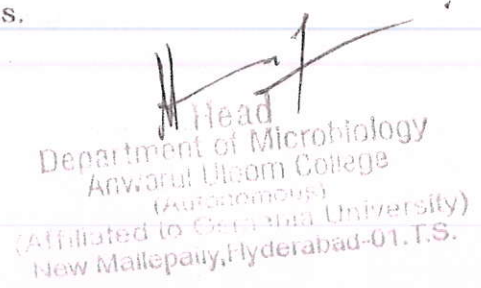 s.
Head
Department of Microbiology
Anwarul Uloom College
(Autonomous)
(Affiliated to Osmania University)
New Mallepally, Hyderabad-01.T.S.